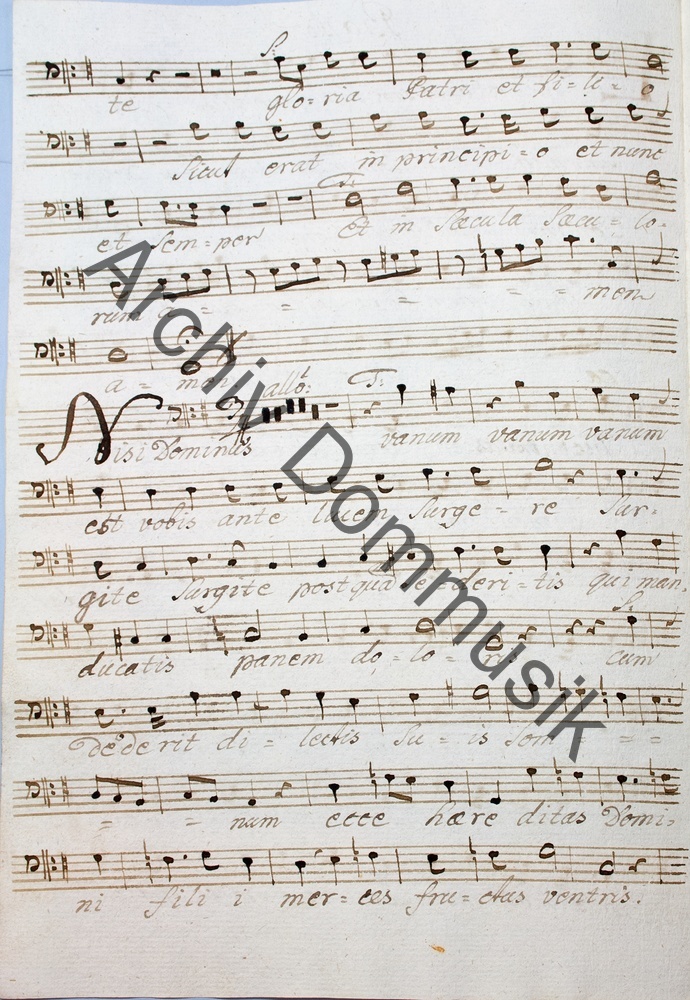 S:
te glo=ria Patri et fi=li=o
Sicut erat in principi=o et nunc
T:
et Sem=per et in Sæcula Sæcu=lo=
rum = = = = = men
a= men
allo: T:
Nisi Dominus vanum vanum vanum
est vobis ante lucem Surge=re Sur=
gite Surgite postquã se=deri=tis qui man=
S:
ducatis panem do=lo=ris cum
dederit di=lectis Su=is Som = =
= = num ecce hære ditas Domi=
ni fili i mer=ces fru=ctus ventris.
Archiv Dommusik